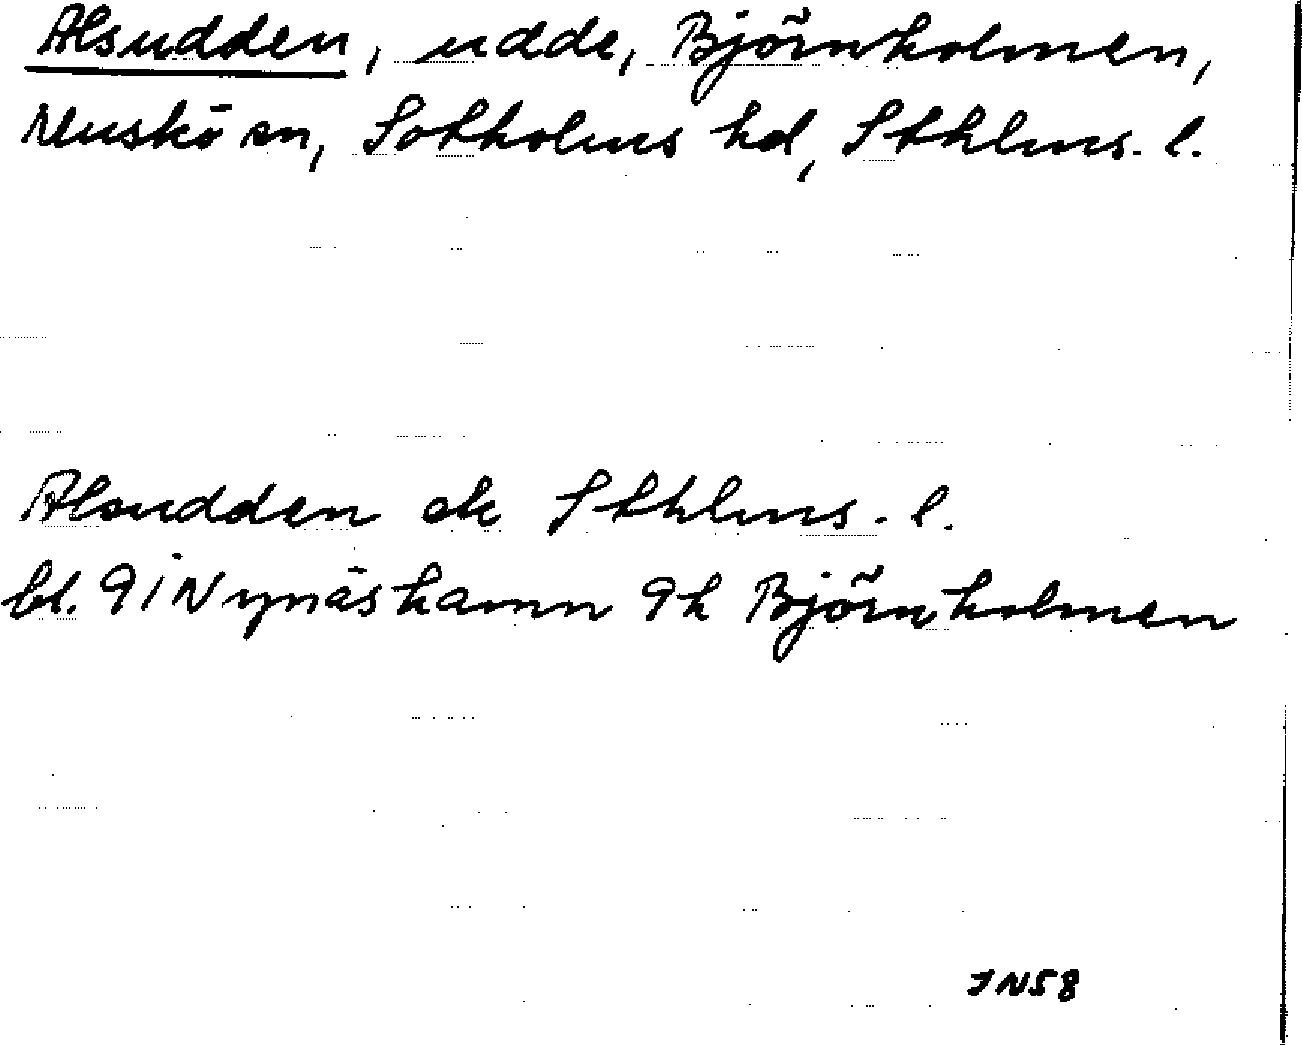 Alsudden, udde, Björnholmen,
Muskö sn, Sotholms hd, Sthlms. l.
Alsudden ek Sthlms. l.
bl. 9 i Nynäshamn 9h Björnholmen
JN58